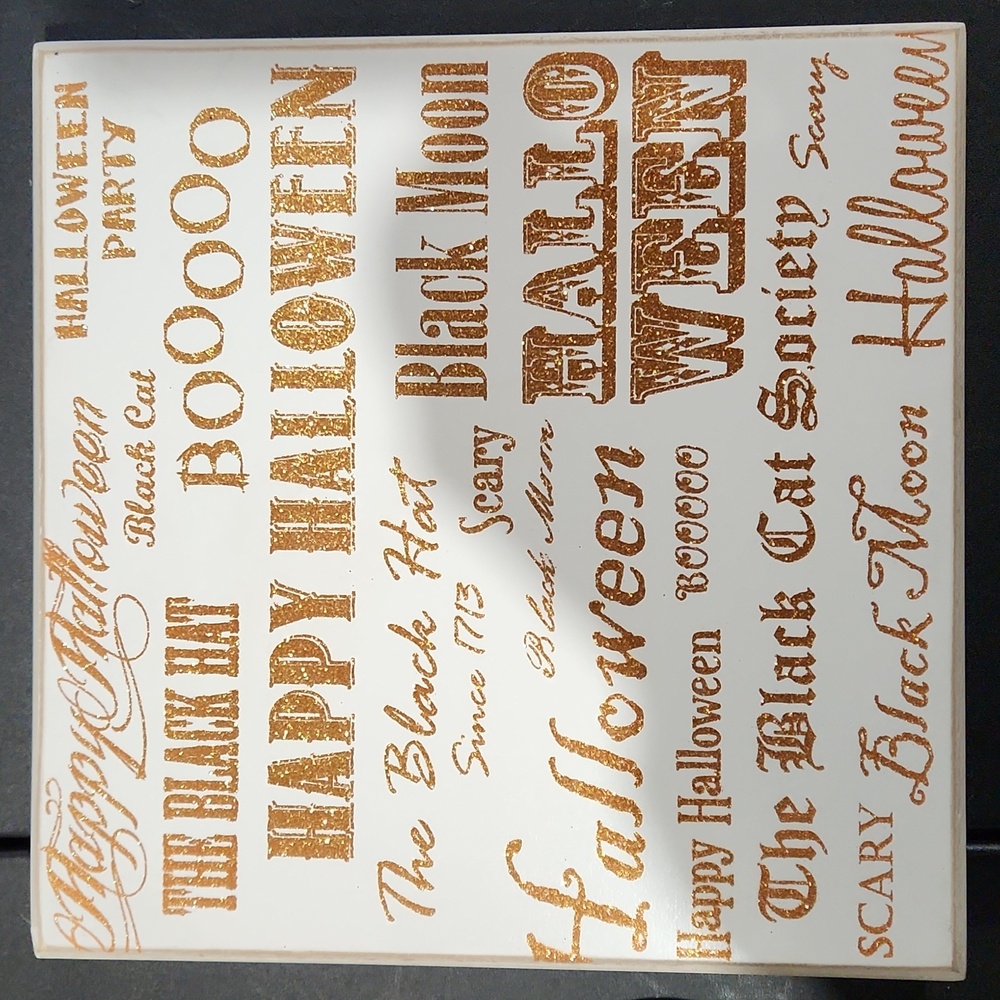 Happy Halloween
HALLOWEEN
PARTY
Black Cat
THE BLACK HAT
BOOOO
HAPPY HALLOWEEN
The Black Hat
Since 1713
Black Moon
Scary
Black Moon
HALLO
WEEN
Halloween
Happy Halloween
BOOOOO
The Black Cat Society
Scary
SCARY
Black Moon
Halloween